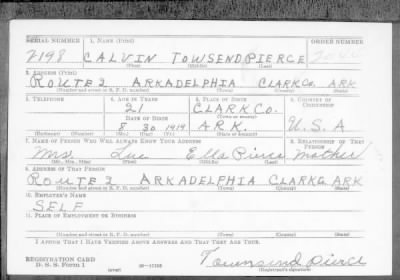 SERIAL NUMBER 1. NAME (Print) ORDER NUMBER
2198 CALVIN TOWSEND PIERCE
(First) (Middle) (Last)
2. ADDRESS (Print)
ROUTE 2 ARKADELPHIA CLARK CO. ARK
(Number and street or R. F. D. number) (Town) (County) (State)
3. TELEPHONE 4. AGE IN YEARS 5. PLACE OF BIRTH 6. COUNTRY OF CITIZENSHIP
21 CLARK CO.
DATE OF BIRTH (Town or county)
8 30 1919 ARK. U.S.A
(Exchange) (Number) (Mo.) (Day) (Yr.) (State or country)
7. NAME OF PERSON WHO WILL ALWAYS KNOW YOUR ADDRESS 8. RELATIONSHIP OF THAT PERSON
Mrs. Ella Pierce Mother
(Mr., Mrs., Miss) (First) (Middle) (Last)
9. ADDRESS OF THAT PERSON
ROUTE 2 ARKADELPHIA CLARK CO. ARK
(Number and street or R. F. D. number) (Town) (County) (State)
10. EMPLOYER'S NAME
SELF
11. PLACE OF EMPLOYMENT OR BUSINESS
(Number and street or R. F. D. number) (Town) (County) (State)
I AFFIRM THAT I HAVE VERIFIED ABOVE ANSWERS AND THAT THEY ARE TRUE.
REGISTRATION CARD
D. S. S. Form 1 (over) Townsend Pierce
(Registrant's signature)